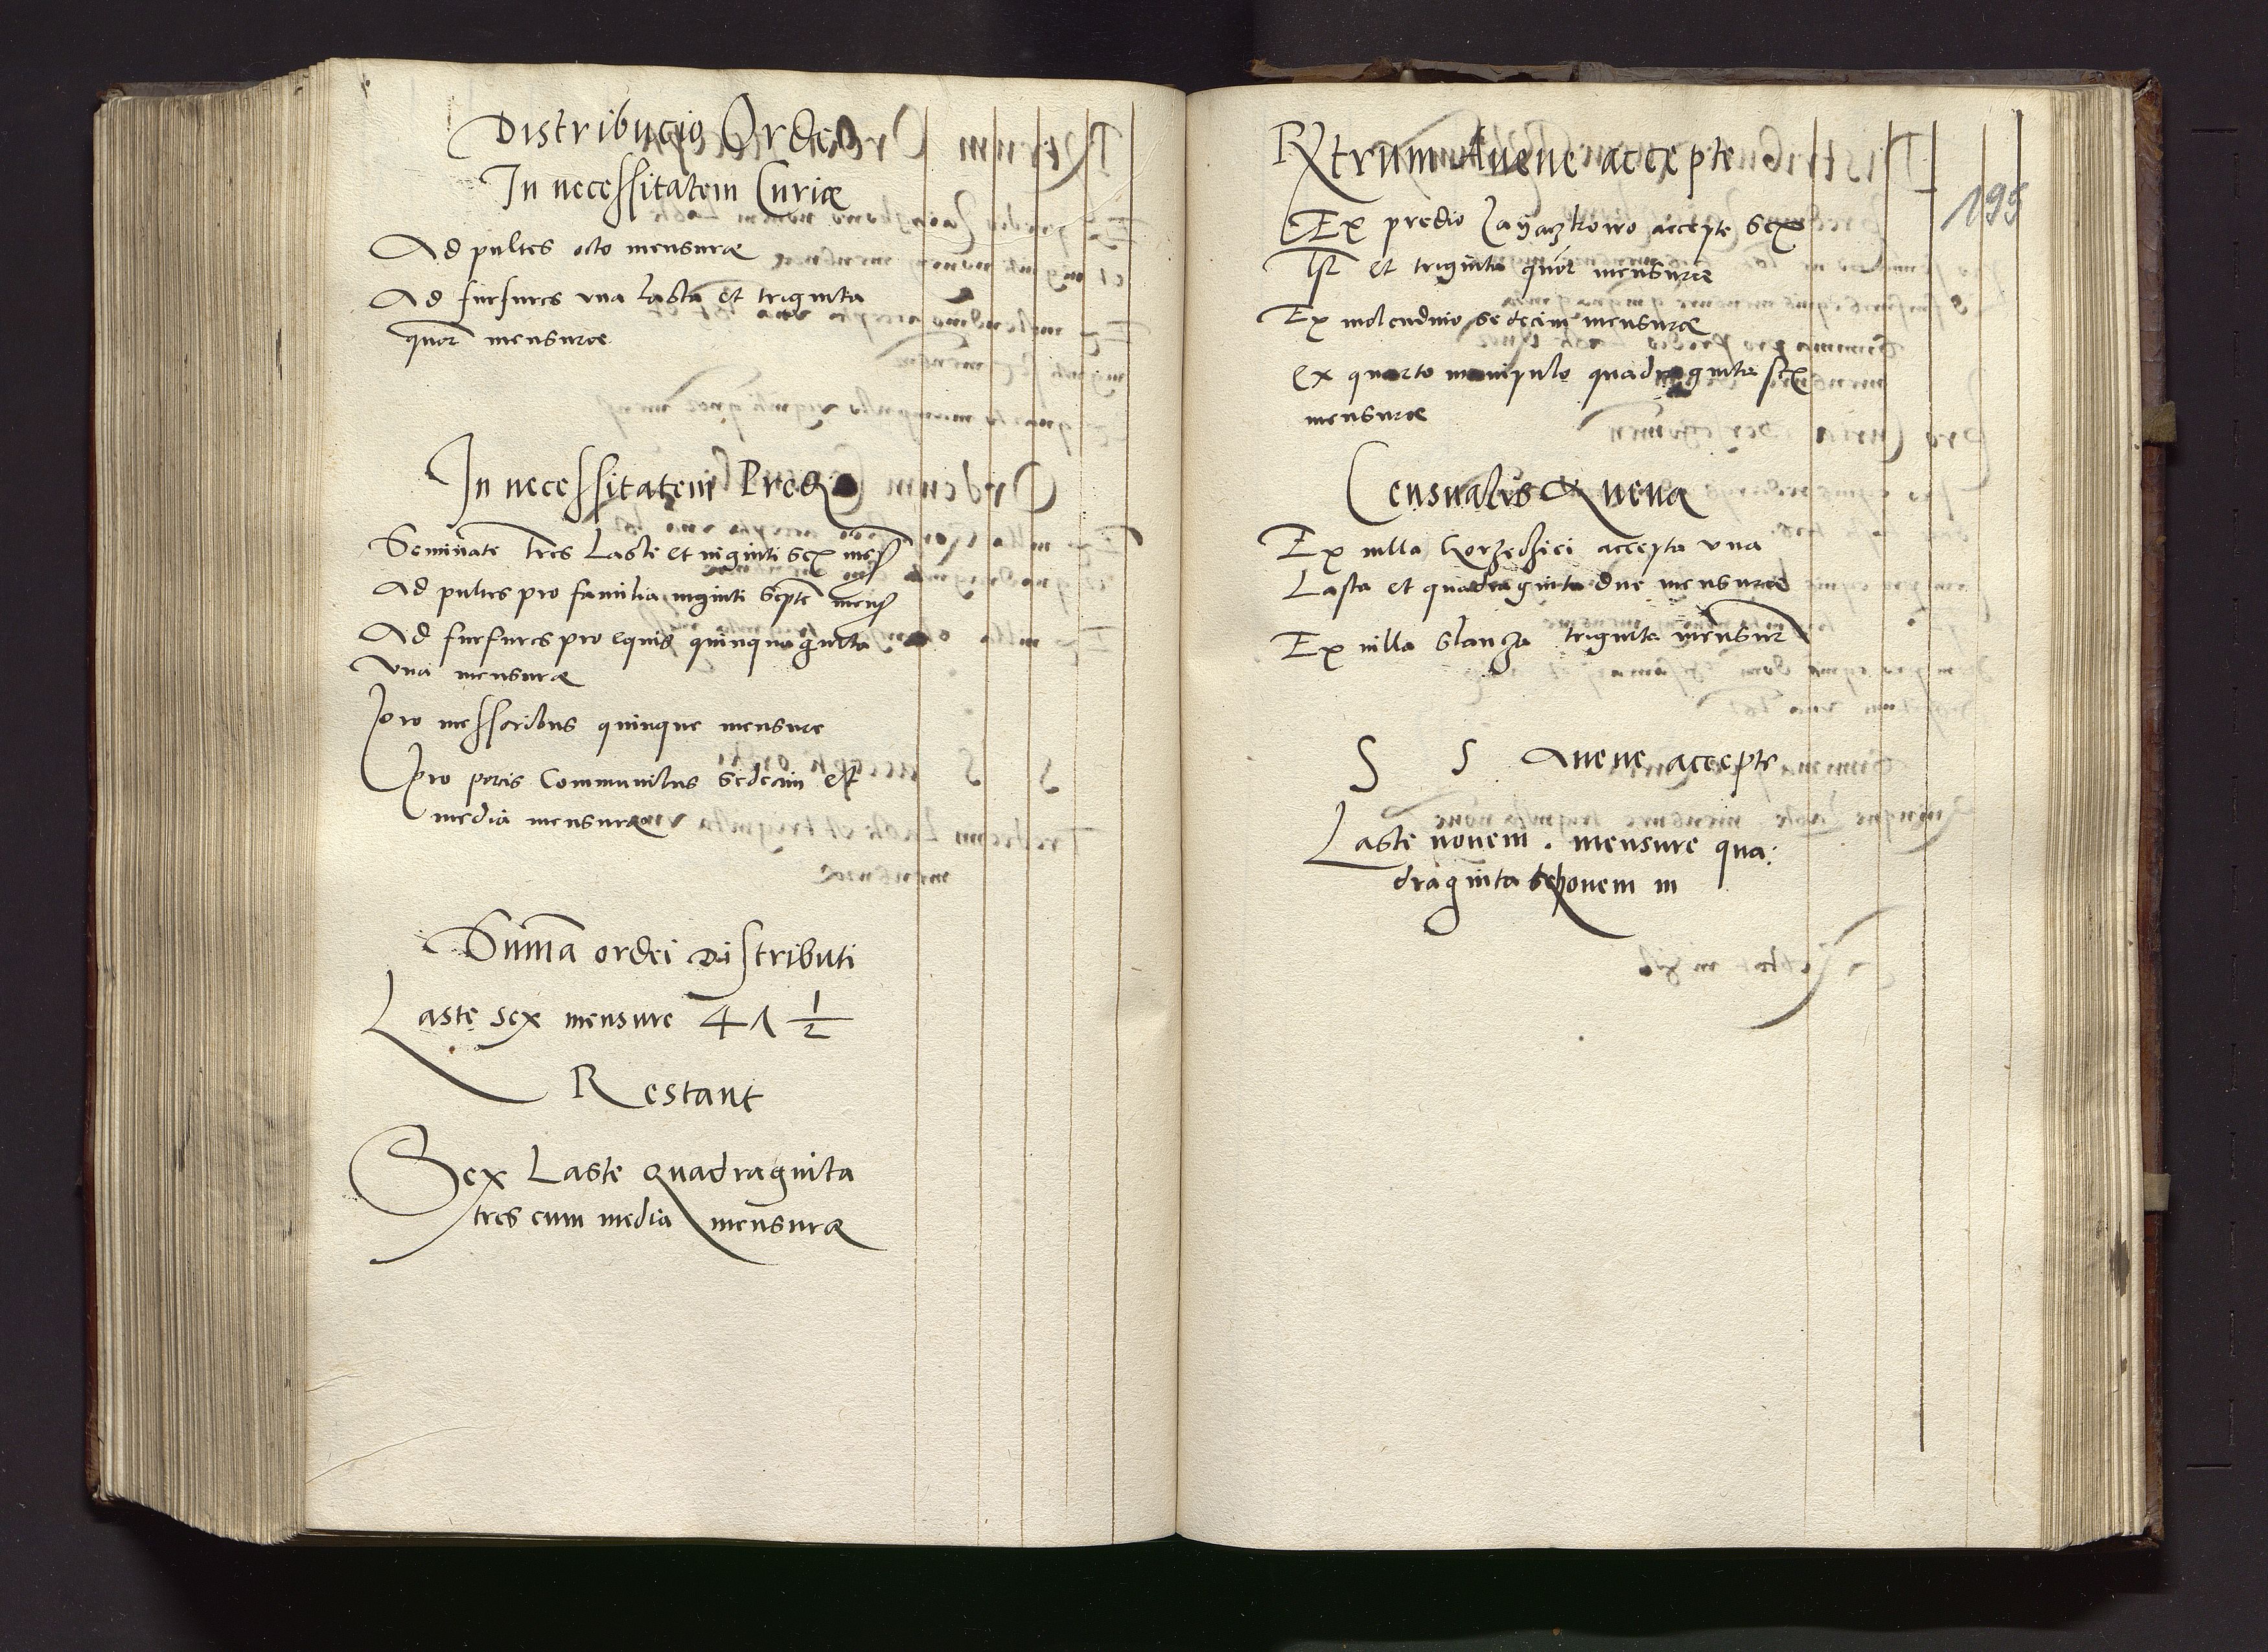 Distribucio Ordei
In necessitatem Curiæ
Ad pultes octo mensuræ
Ad furfures vna Lasta et triginta
quor mensuræ
In necessitatem Predii
Seminate tres Laste et viginti sex mens
Ad pultes pro familia viginti septe mens
Ad furfures pro equis quinquaginta
vna mensuræ
pro messoribus quinque mensure
pro porcis Communibus sedecim et
media mensuræ
Suma ordei distributi
Laste sex mensure 41 1/2
Restant
Sex Laste quadraginta
tres cum media mensuræ
195
Rxtrum Auene accepte
Ex predio Zayaczkowo accepte sex
lst et triginta quor mensuræ
Ex molendino sedecim mensuræ
Ex quarto manipulo quadraginta sex
mensuræ
Censualis Auena
Ex villa Korzedzici accepta vna
Lasta et quadraginta due mensuræ
Ex villa Slanza triginta mensur
S S Auene accepte
Laste novem . mensure qua:
draginta novem m